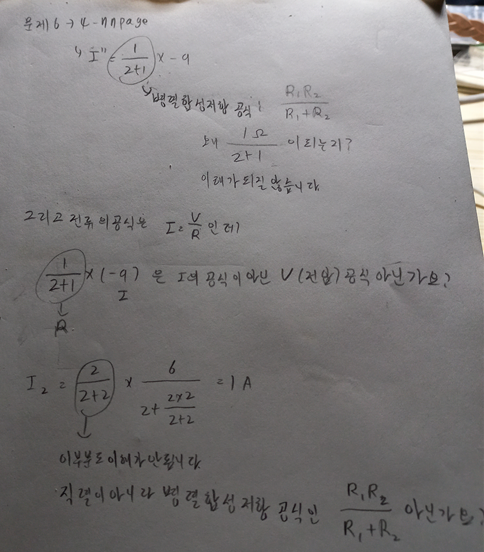 문제 6 → 4-nn page
"I" = 1/(2+1) × -9
↳ 병렬합성저항 공식 : R₁R₂/(R₁+R₂)
왜 1Ω/(2+1) 이 되는지?
이해가 되질 않습니다
그리고 전류의 공식은 I = V/R 인데?
1/(2+1) × (-9) 은 I의 공식이 아닌 V(전압) 공식 아닌가요?
↓ I
R
I₂ = 2/(2+2) × 6/(2 + (2×2)/(2+2)) = 1A
↓
이부분도 이해가 안됩니다
직렬이 아니라 병렬합성저항 공식인 R₁R₂/(R₁+R₂) 아닌가요?